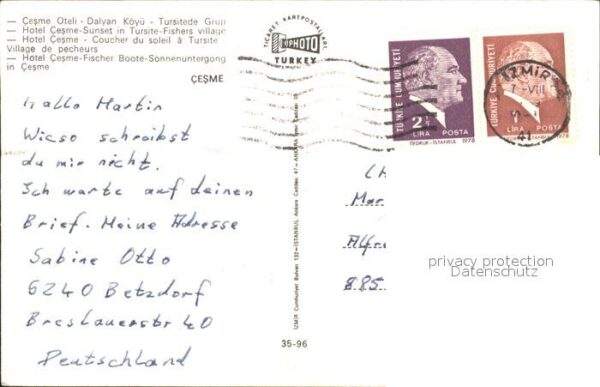 — Çeşme Oteli - Dalyan Köyü - Tursitede Grup
— Hotel Çeşme-Sunset in Tursite-Fishers village
— Hotel Çeşme - Coucher du soleil à Tursite
Village de pecheurs
— Hotel Çeşme-Fischer Boote-Sonnenuntergong
in Çeşme
ÇEŞME
TİCARET KARTPOSTALLARI
PHOTO
TURKEY
Hallo Martin
Wieso schreibst
du mir nicht.
Ich warte auf deinen
Brief. Meine Adresse
Sabine Otto
6240 Betzdorf
Breslauerstr 40
Deutschland
İZMİR Cumhuriyet Bulvarı 132-İSTANBUL Ankara Caddesi 47-ANKARA
35-96
TÜRKİYE CUMHURİYETİ
2½
LİRA POSTA
1978
TÜRKİYE CUMHURİYETİ
LİRA POSTA
1978
İZMİR
7-VIII
Mar
Alfre
885
privacy protection
Datenschutz